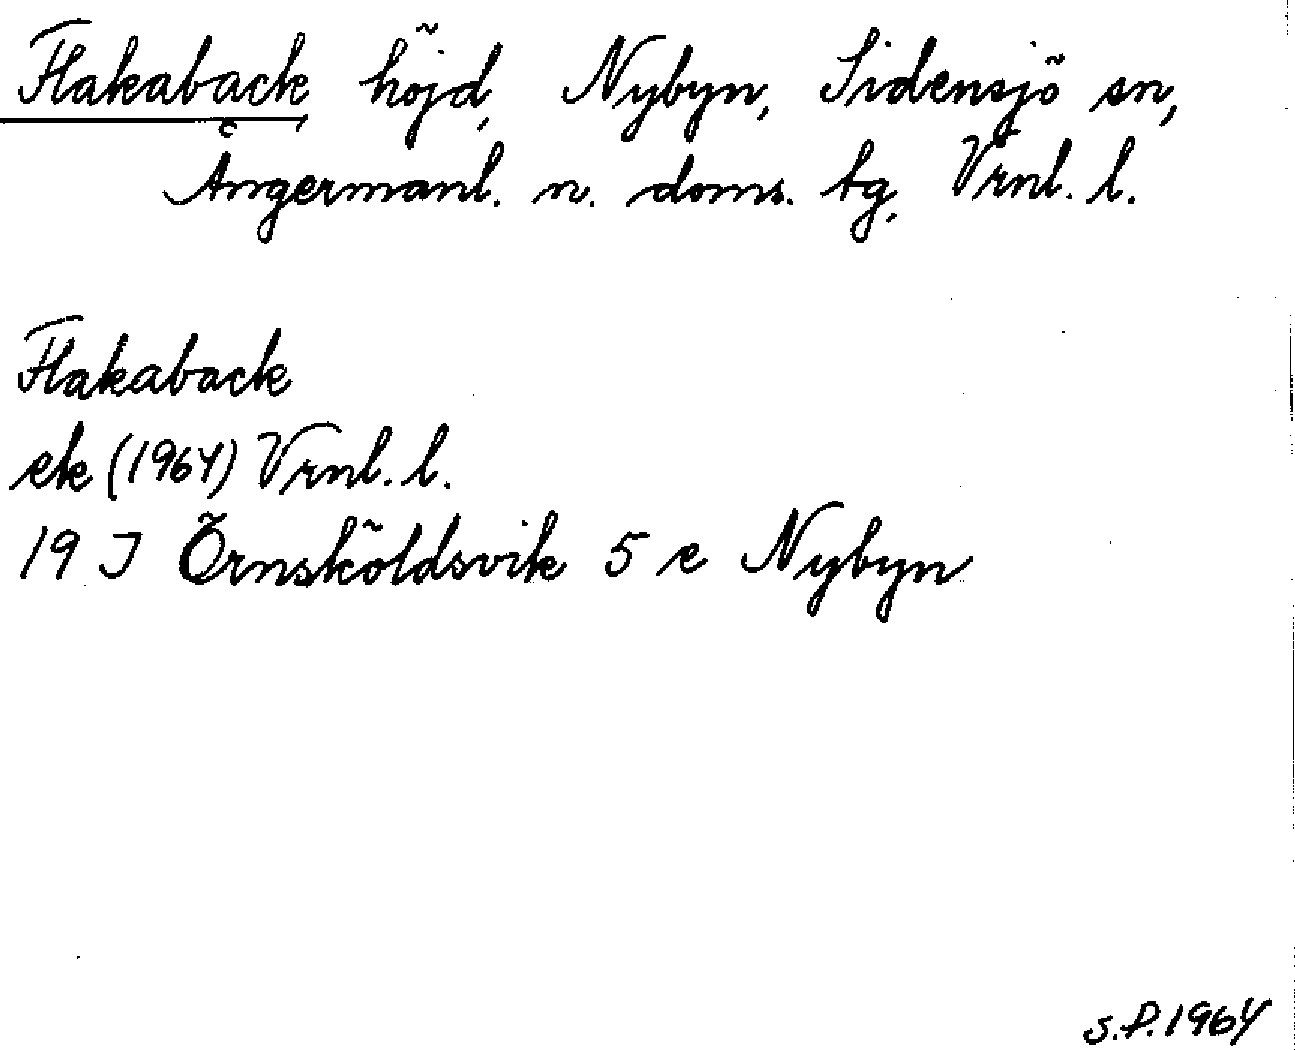 Flakaback, höjd, Nybyn, Sidensjö sn,
Ångermanl. n. doms. tg, Vrnl. l.
Flakaback
ek (1964) Vrnl. l.
19 J Örnsköldsvik 5 e Nybyn
S.P. 1964